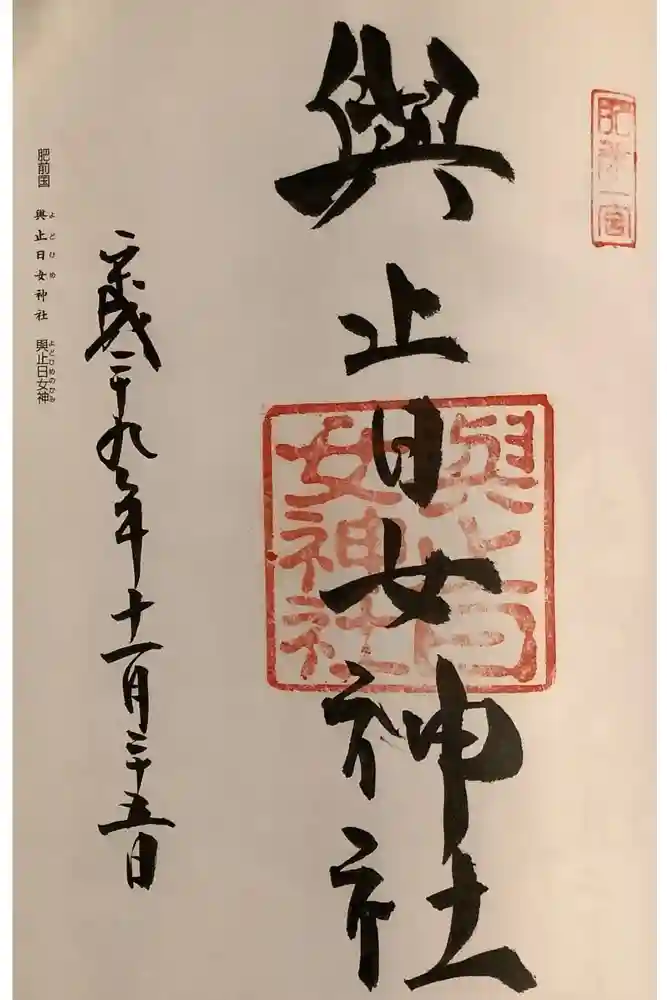 肥前一宮
與止日女神社
與止日
女神社
平成二十九年十一月二十五日
肥前国 與止日女神社 與止日女神
よどひめ よどひめのかみ